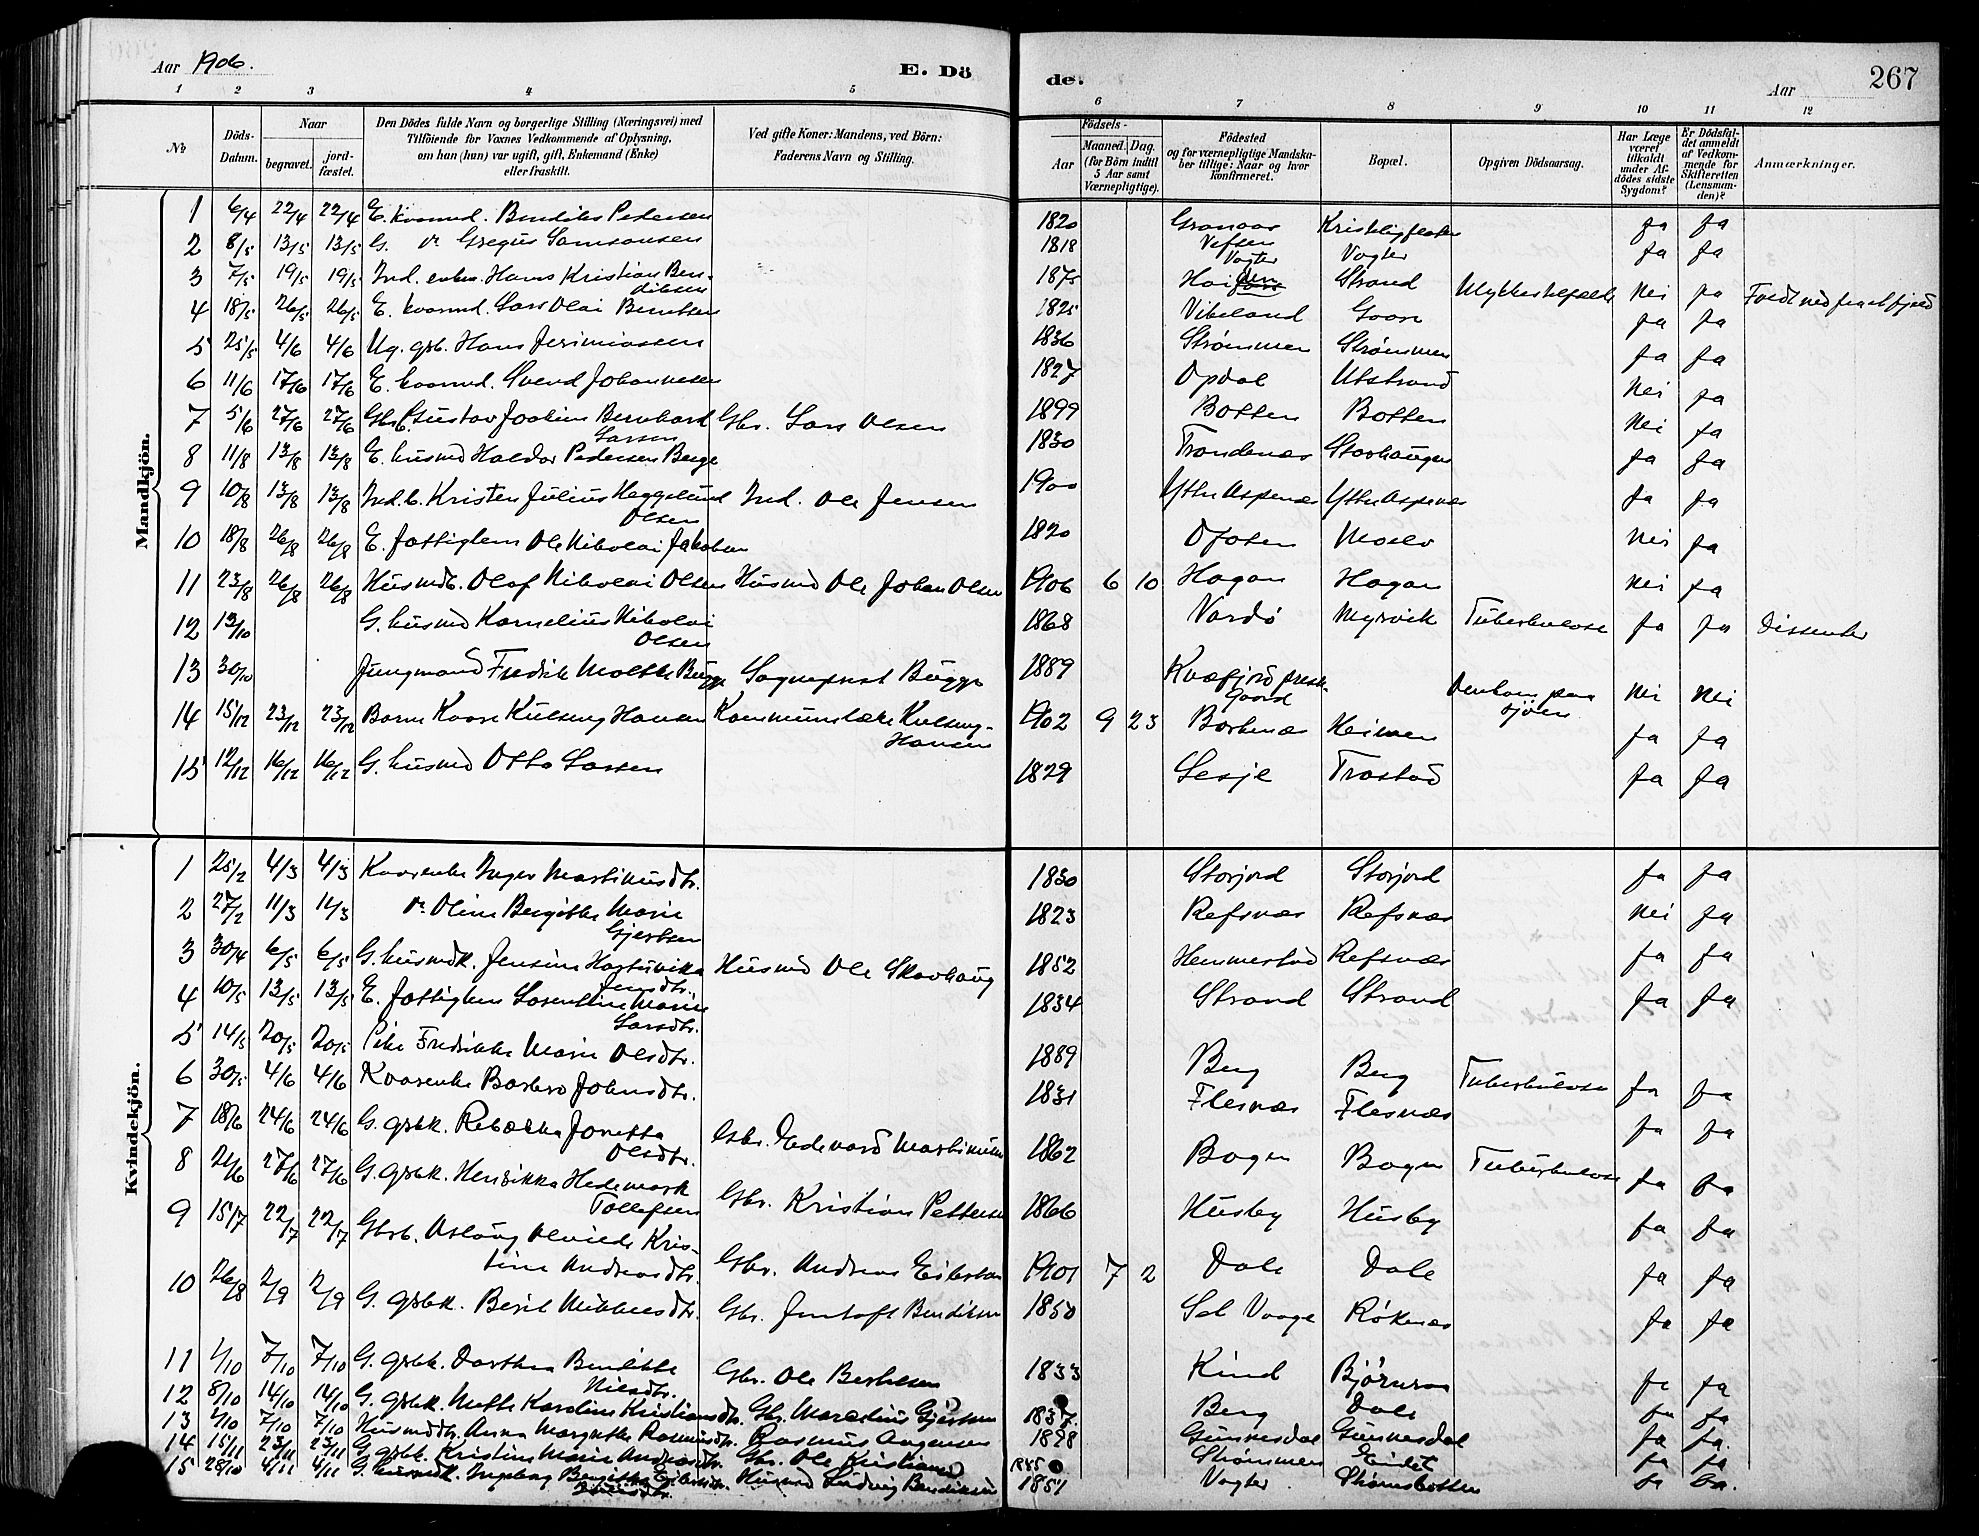 Aar 1906. E. Dö
de. Aar 267
1 2 3 4 5 6 7 8 9 10 11 12
No
Döds-Datum.
Naar
begravet.
jord-fæstet.
Den Dödes fulde Navn og borgerlige Stilling (Næringsvei) med
Tilföiende for Voxnes Vedkommende af Oplysning,
om han (hun) var ugift, gift, Enkemand (Enke)
eller fraskilt.
Ved gifte Koner: Mandens, ved Börn:
Faderens Navn og Stilling.
Födsels-
Aar
Maaned. Dag.
(for Börn indtil
5 Aar samt
Værnepligtige).
Födested
og for værnepligtige Mandska-
ber tillige: Naar og hvor
konfirmeret.
Bopæl.
Opgiven Dödsaarsag.
Har Læge
været
tilkaldt
under Af-
dødes sidste
Sygdom?
Er Dödsfal-
det anmeldt
af Vedkom-
mende for
Skifteretten
(Lensman-
den)?
Anmærkninger.
Mandkjön.
1 6/4 22/4 22/4 E. kaarmd. Pedersen 1820 ja ja
2 8/5 13/5 13/5 G. do Gregus Samsonsen 1818 Vefsen Vogter ja ja
3 7/5 19/5 19/5 Ind. enkm. Hans Kristian Ben-
diksen 1875 Strand Ulykkestilfælde Nei ja
4 18/5 26/5 26/5 E. kaarmd. Lars Olai Berntsen 1825 Vikeland ja ja
5 25/5 4/6 4/6 Ug. gsb. Hans Jerimiassen 1836 Strømmen Strømmen ja ja
6 11/6 17/6 17/6 E. kaarmd. Svend Johannesen 1827 Opdal Utstrand Nei ja
7 5/6 27/6 27/6 Gbr.b. Gustav Joakim Bernhard
Larsen Gbr. Lars Olsen 1899 Botten Botten Nei ja
8 11/8 13/8 13/8 E. husmd Haldor Pedersen Berge 1830 Trondenæs Storhaugen ja ja
9 10/8 13/8 13/8 Ind.b. Kristen Julius Heggelund
Olsen Ind. Ole Jensen 1900 Ytre Aspenæs Ytre Aspenæs ja ja
10 18/8 26/8 26/8 E. fattiglem Ole Nikolai Jakobsen 1820 Ofoten Nei ja
11 23/8 26/8 26/8 Husmdb. Olaf Nikolai Olsen Husmd Ole Johan Olsen 1906 6 10 Hagan Hagan Nei ja
12 13/10 G. husmd Kornelius Nikolai
Olsen 1868 Vardö Myrvik Tuberkulose ja ja Dissenter
13 30/10 Jungmand Fredrik Moltke Bugge Sogneprest Bugge 1889 Kvæfjord prest-
gaard Omkom paa
sjöen Nei Nei
14 15/12 23/12 23/12 Barn Kaare Kulseng Hansen Kommunelæge Kulseng-
Hansen 1902 9 23 Borkenæs Heimen ja ja
15 12/12 16/12 16/12 G. husmd Otto Larsen 1829 Lesje Trastad ja ja
Kvindekjön.
1 25/2 4/3 4/3 Kaarenke Inger Martinusdtr. 1830 Storjord Storjord ja ja
2 27/2 11/3 11/3 do Oline Bergitte Marie
Gjertsen 1823 Refsnæs Refsnæs Nei ja
3 30/4 6/5 6/5 G. husmdk. Jensine Hartvikka
Jensdtr. Husmd Ole Skavhaug 1852 Hemmestad Refsnæs ja ja
4 10/5 13/5 13/5 E. fattiglem Lorentine Marie
Larsdtr. 1834 Strand Strand ja ja
5 14/5 20/5 20/5 Pike Fredrikke Marie Olsdtr. 1889 Berg Berg Tuberkulose ja ja
6 30/5 4/6 4/6 Kaarenke Barbro Johnsdtr. 1831 Flesnæs Flesnæs ja ja
7 18/6 24/6 24/6 G. gsbk. Rebekka Jonetta
Olsdtr. Gbr. Edevard Martinussen 1862 Bogen Bogen Tuberkulose ja ja
8 21/6 27/6 27/6 G. gsbk. Henrikka Hedemark
Tollefsen Gbr. Kristian Pettersen 1866 Husby Husby ja ja
9 15/7 22/7 22/7 Gbrb. Aslaug Kris-
tine Andreasdtr. Gbr. Andreas Eilertsen 1901 7 2 Dale Dale ja ja
10 26/8 2/9 2/9 G. gsbk. Berit Mikkelsdtr. Gbr. Jentoft Bendiksen 1850 Sel Vaage Røkenæs ja ja
11 1/10 7/10 7/10 G. gsbk. Dorthea Bendikte
Nilsdtr. Gbr. Ole Bertelsen 1833 Kind Björnraa ja ja
12 8/10 14/10 14/10 G. gsbk. Mette Karoline Kristiansdtr. Gbr. Marelius Gjertsen 1837. Berg Dale ja ja
13 1/10 7/10 7/10 Husmdtr. Anna Margrethe Rasmusdtr. Rasmus Angensen 1898 Gunnesdal Gunnesdal ja ja.
14 15/11 23/11 23/11 G. gsbk. Kristine Marie Andreasdtr. Gbr. Ole Kristiansen 1885 Strømmen Eidet ja ja
15 28/10 4/11 4/11 G. husmdk. Ingeborg Bergitha Eilertsdtr. Husmd Ludvig Bendiksen 1851 Vogter Strømsbotten ja ja.